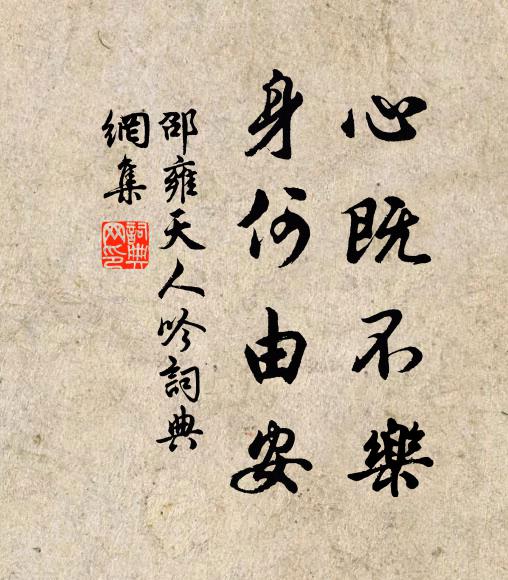 心既不樂
身何由安
邵雍天人吟詞典
網集
詞典網印